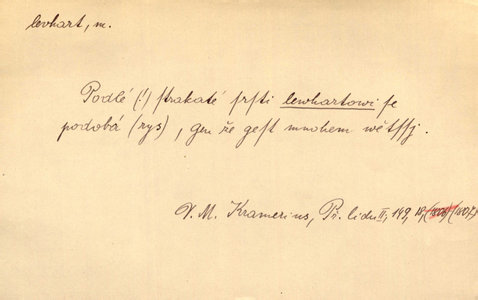 levhart, m.
Podlé (!) strakaté srsti lewhartowi se
podobá (rys), gen že gest mnohem wětssj.
V. M. Kramerius, Př. lidu II, 149,